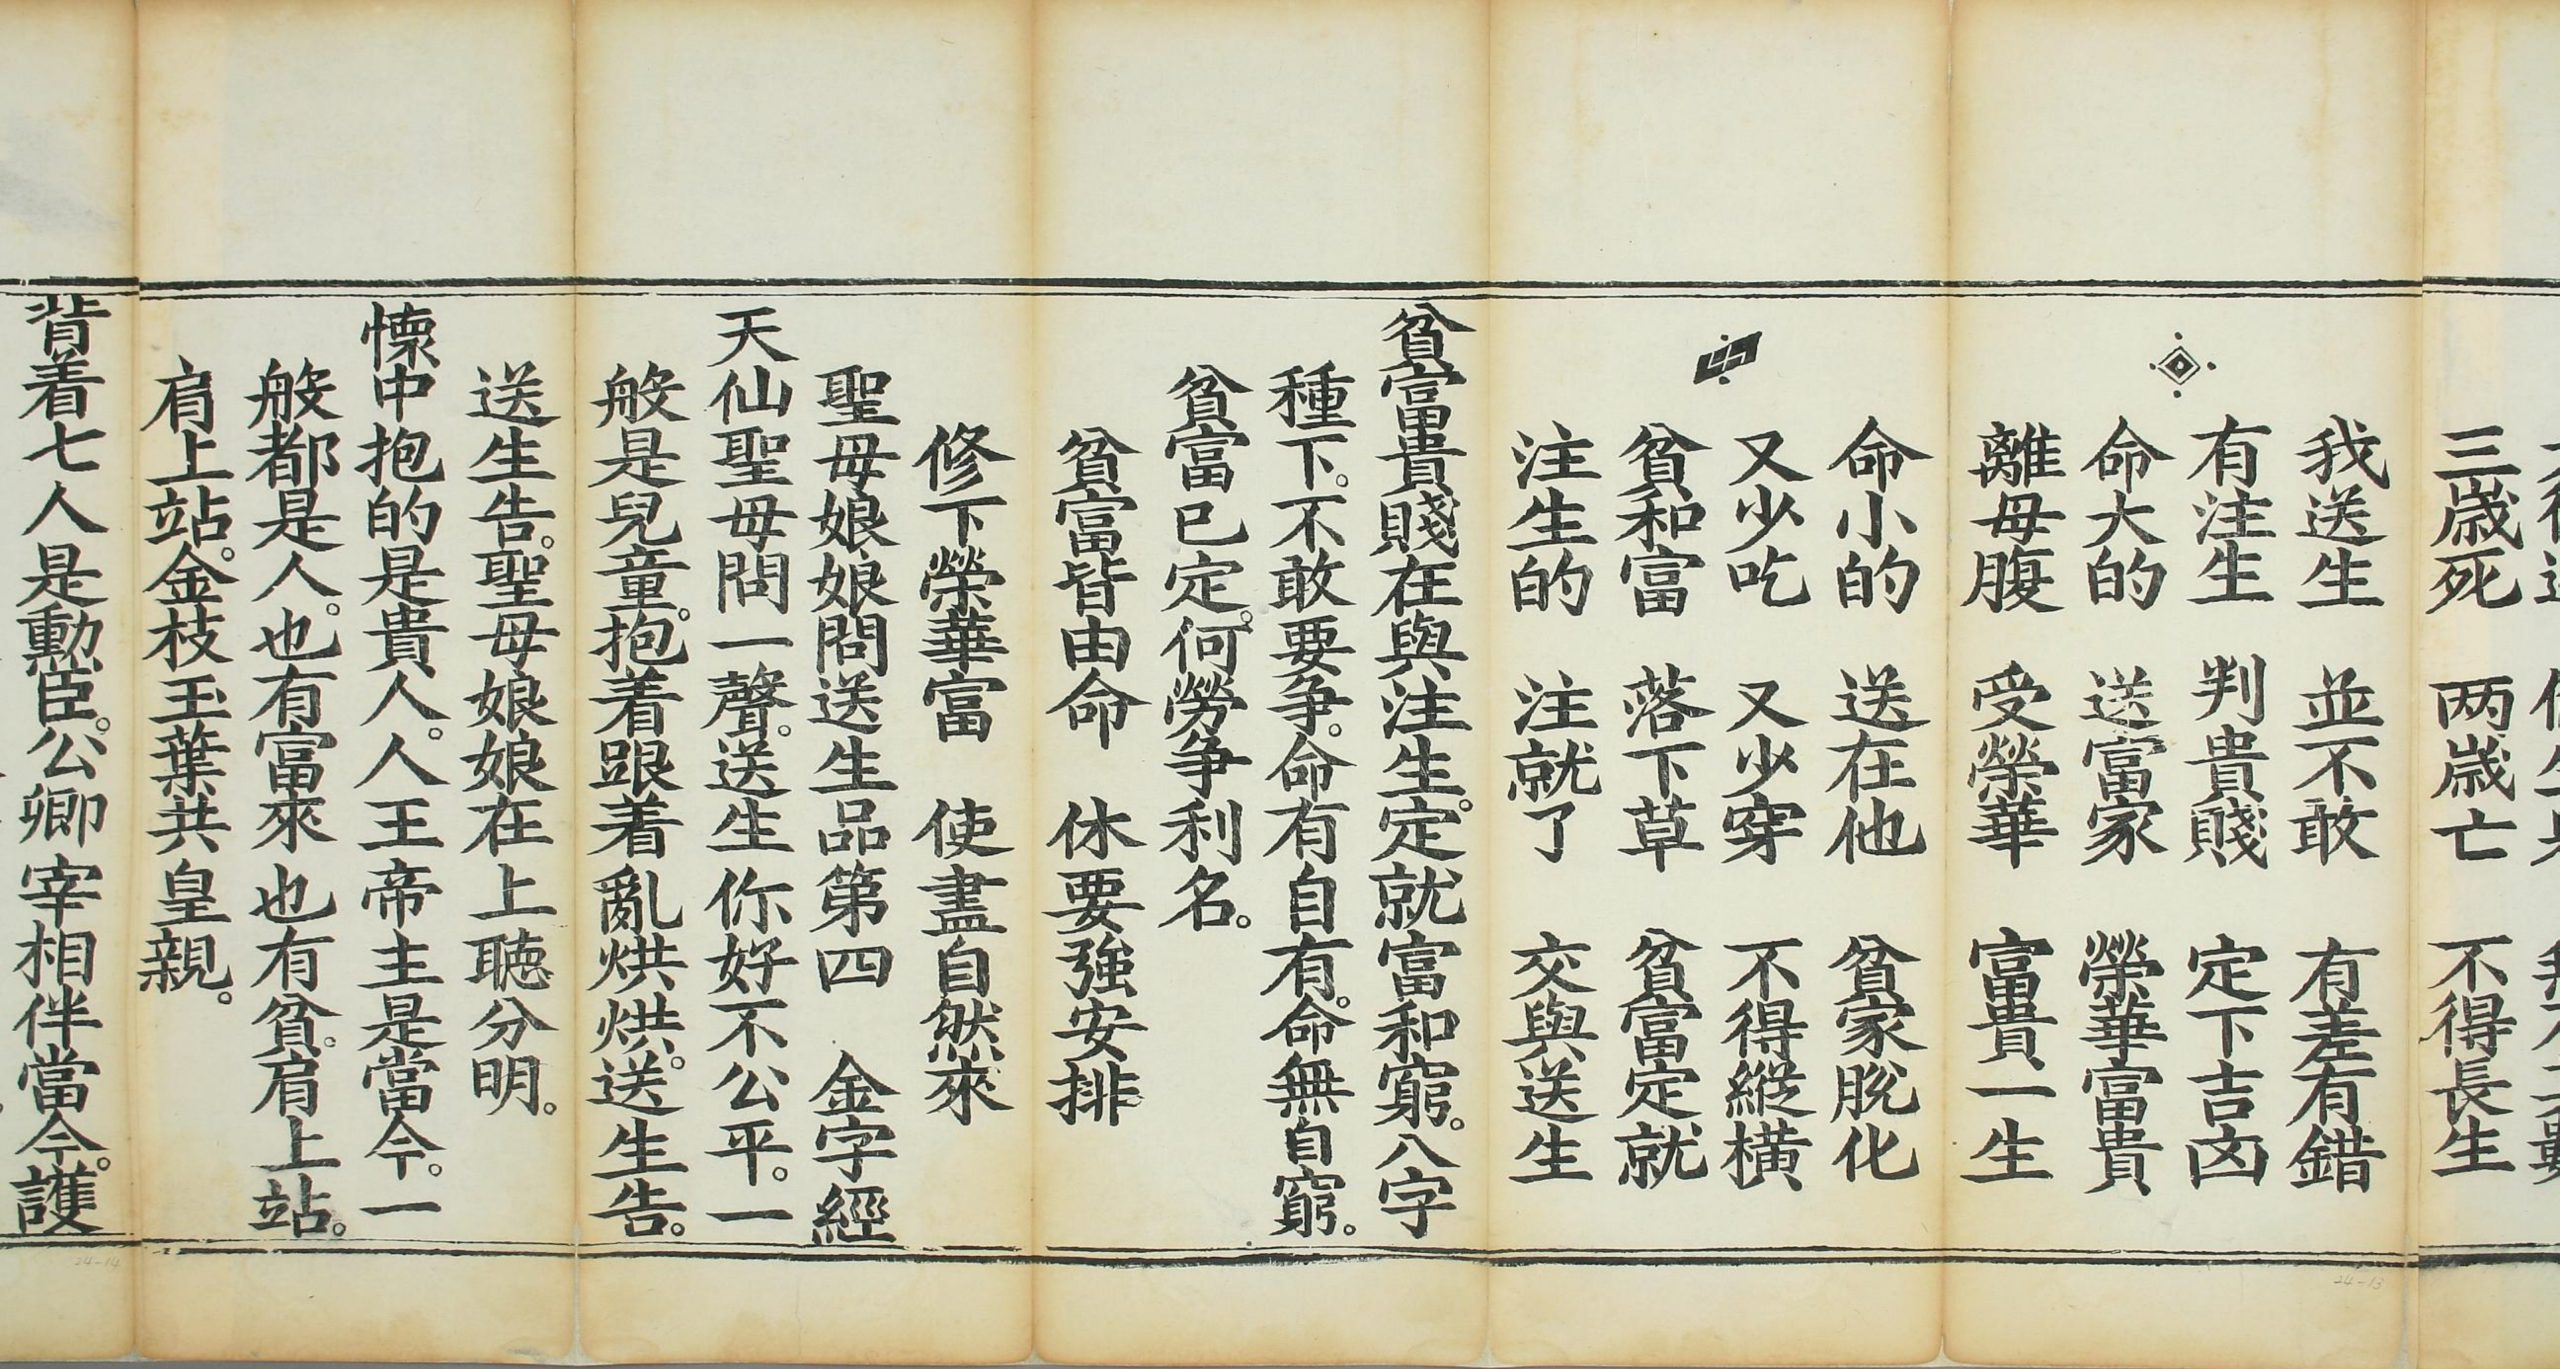 三歲死　两歲亡　不得長生
我送生　並不敢　有差有錯
有注生　判貴賤　定下吉凶
命大的　送富家　榮華富貴
離母腹　受榮華　富貴一生
命小的　送在他　貧家脫化
又少吃　又少穿　不得縱橫
貧和富　落下草　貧富定就
注生的　注就了　交與送生
貧富貴賤在與注生。定就富和窮。八字
種下。不敢要爭。命有自有。命無自窮。
貧富已定。何勞爭利名。
貧富皆由命　休要強安排
修下榮華富　使盡自然來
聖母娘娘問送生品第四　金字經
天仙聖母問一聲。送生你好不公平。一
般是兒童。抱着跟着亂烘烘。送生告。
送生告。聖母娘娘在上聽分明。
懐中抱的是貴人。人王帝主是當今。一
般都是人。也有富來也有貧。肩上站。
肩上站。金枝玉葉共皇親。
背着七人是勳臣。公卿宰相伴當今。護
24-14
24-13